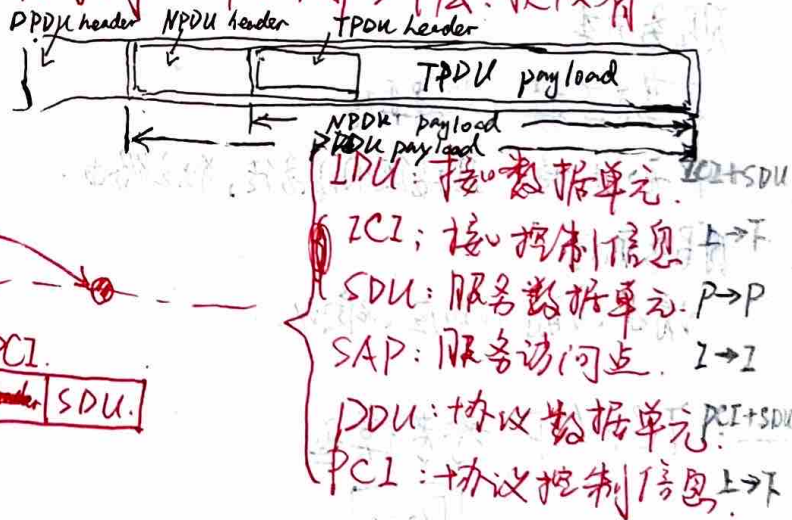 DPDU header NPDU header TPDU header
TPDU payload
NPDU payload
DPDU payload
IDU: 接口数据单元. ICI+SDU
ICI: 接口控制信息 上→下
SDU: 服务数据单元. P→P
SAP: 服务访问点. I→I
PDU: 协议数据单元. PCI+SDU
PCI: 协议控制信息. 上→下
PCI.
SDU.